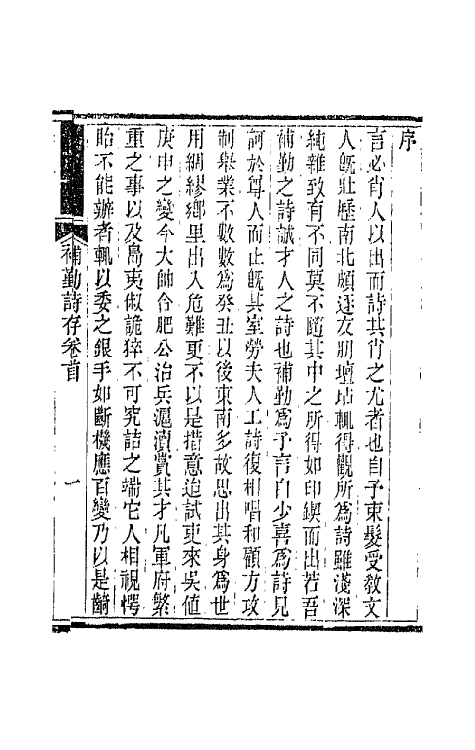 序
言必肖人以出而詩其肖之尤者也自予束髮受敎文
人旣壯歷南北頗逐友朋壇坫輒得觀所爲詩雖淺深
純雜致有不同莫不隨其中之所得如印鍥而出若吾
補勤之詩誠才人之詩也補勤爲予言自少喜爲詩見
訶於尊人而止旣其室勞夫人工詩復相唱和顧方攻
制舉業不數數爲癸丑以後東南多故思出其身爲世
用綢繆鄉里出入危難更不以是措意迨試吏來吳値
庚申之變今大帥合肥公治兵滬瀆賞其才凡軍府繁
重之事以及島夷俶詭猝不可究詰之端它人相視愕
眙不能辦者輒以委之銀手如斷機應百變乃以是齮
補勤詩存卷首
一